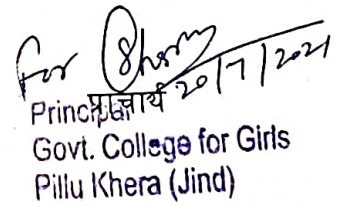 For
20/7/2021
Principal प्राचार्य
Govt. College for Girls
Pillu Khera (Jind)